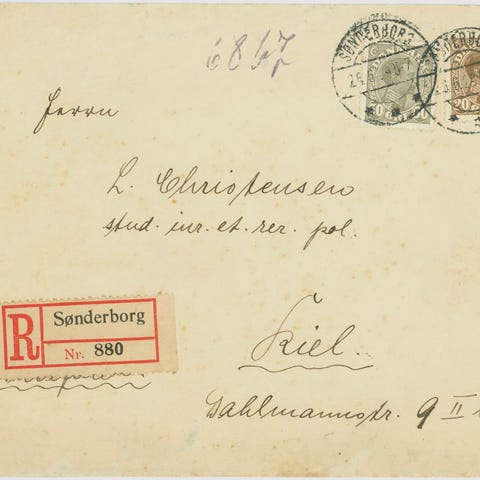 6847
SØNDERBORG
SØNDERBORG
20
Herrn
L. Christensen
stud. iur. et. rer. pol.
R Sønderborg
Nr. 880
Kiel.
Dahlmannstr. 9 II